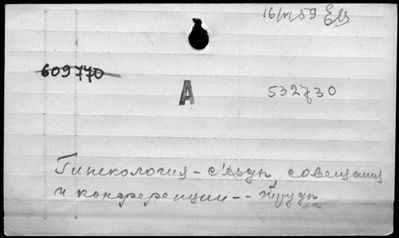 16/VI 59
609770
А 532730
Гинекология - съезды, совещания
и конференции -- труды